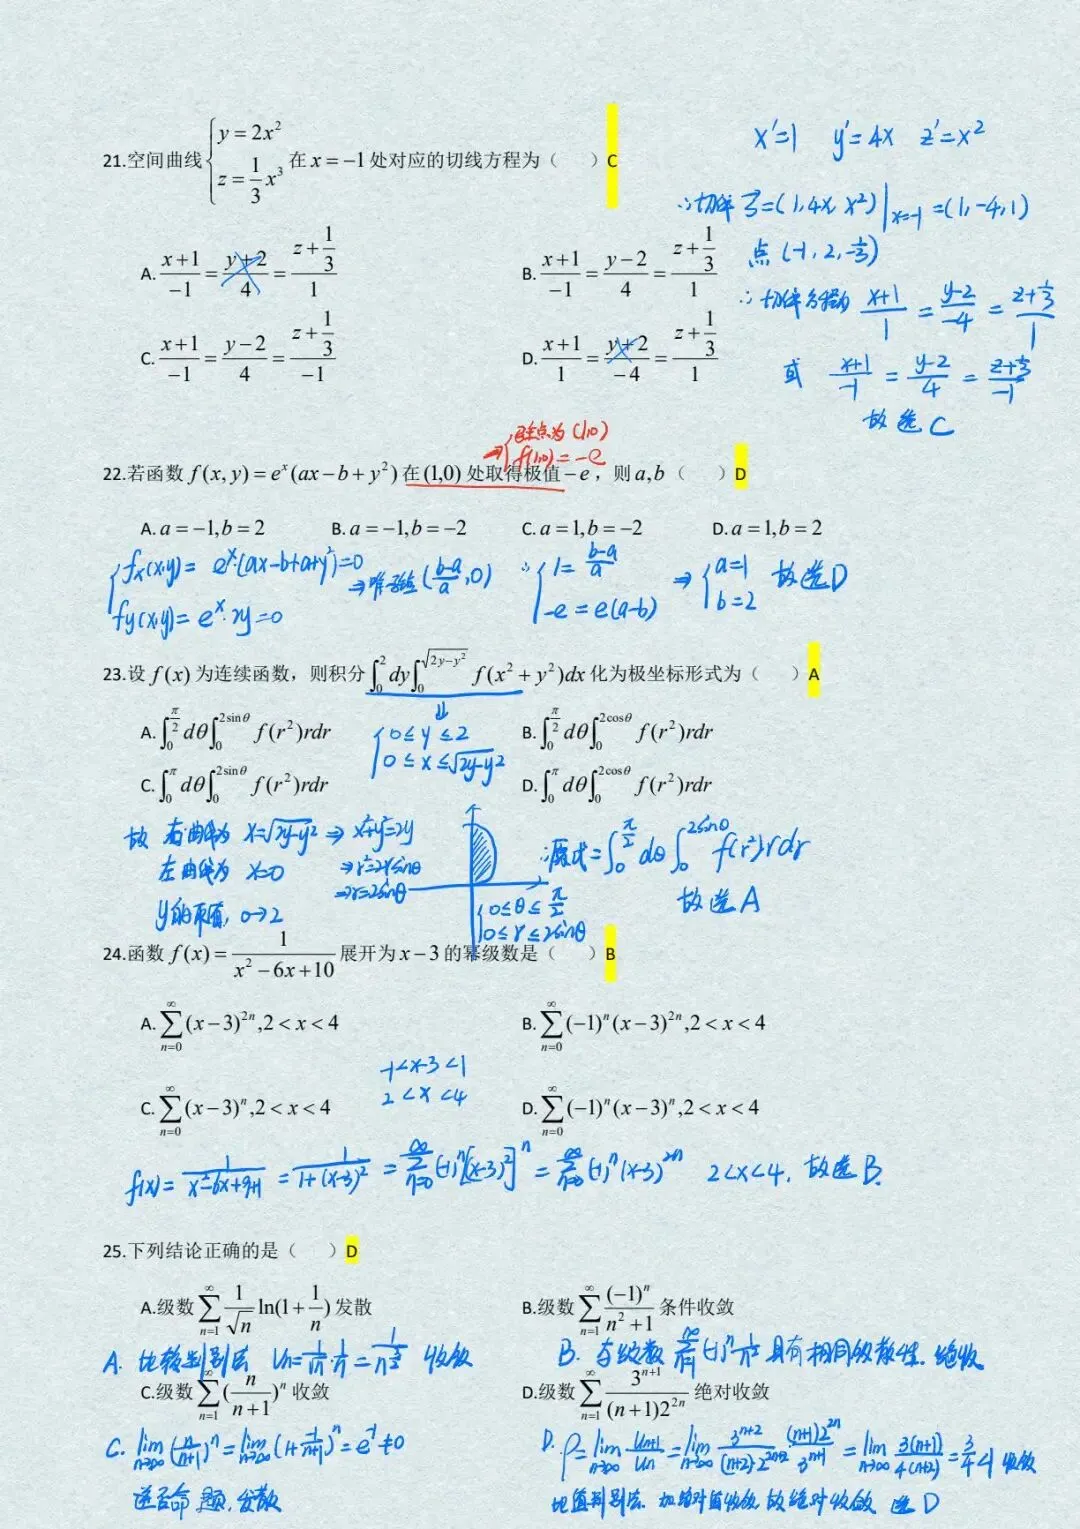 21.空间曲线{y=2x² z=1/3 x³ 在 x=−1 处对应的切线方程为（ ）C
x'=1 y'=4x z'=x²
∴切线 s=(1,4x,x²)|x=-1 =(1,-4,1)
点(-1,2,-1/3)
A. (x+1)/−1 = (y+2)/4 = (z+1/3)/1
B. (x+1)/−1 = (y−2)/4 = (z+1/3)/1
∴切线方程为 (x+1)/1 = (y-2)/-4 = (z+1/3)/1
C. (x+1)/−1 = (y−2)/4 = (z+1/3)/−1
D. (x+1)/1 = (y+2)/−4 = (z+1/3)/1
或 (x+1)/-1 = (y-2)/4 = (z+1/3)/-1
故选C
驻点为(1,0)
f(1,0)=-e
22.若函数 f(x,y)=eˣ(ax−b+y²) 在(1,0) 处取得极值−e，则a,b（ ）D
A. a=−1,b=2 B. a=−1,b=−2 C. a=1,b=−2 D. a=1,b=2
{fx(x,y)=eˣ·(ax-b+a+y²)=0
fy(x,y)=eˣ·2y=0
⇒唯一驻点((b-a)/a,0)
∴{1=(b-a)/a
-e=e(a-b)
⇒{a=1
b=2
故选D
23.设 f(x) 为连续函数，则积分∫₀² dy∫₀^√(2y−y²) f(x²+y²)dx 化为极坐标形式为（ ）A
A. ∫₀^(π/2) dθ∫₀^(2sinθ) f(r²)rdr
⇓
{0≤y≤2
0≤x≤√(2y-y²)
B. ∫₀^(π/2) dθ∫₀^(2cosθ) f(r²)rdr
C. ∫₀^π dθ∫₀^(2sinθ) f(r²)rdr
D. ∫₀^π dθ∫₀^(2cosθ) f(r²)rdr
故 右曲线为 x=√(2y-y²)⇒x²+y²=2y
左曲线为 x=0 ⇒r²=2rsinθ
⇒r=2sinθ
y的取值,0→2
{0≤θ≤π/2
0≤r≤2sinθ
∴原式=∫₀^(π/2) dθ∫₀^(2sinθ) f(r²)rdr
故选A
24.函数 f(x)=1/(x²−6x+10) 展开为 x−3 的幂级数是（ ）B
A. ∑(n=0,∞) (x−3)²ⁿ,2<x<4
B. ∑(n=0,∞) (−1)ⁿ(x−3)²ⁿ,2<x<4
-1<x-3<1
2<x<4
C. ∑(n=0,∞) (x−3)ⁿ,2<x<4
D. ∑(n=0,∞) (−1)ⁿ(x−3)ⁿ,2<x<4
f(x)=1/(x²-6x+9+1)=1/(1+(x-3)²)=∑(n=0,∞)(-1)ⁿ[(x-3)²]ⁿ=∑(n=0,∞)(-1)ⁿ(x-3)²ⁿ 2<x<4, 故选B.
25.下列结论正确的是（ ）D
A.级数 ∑(n=1,∞) 1/√n ln(1+1/n) 发散
B.级数 ∑(n=1,∞) (−1)ⁿ/(n²+1) 条件收敛
A. 比较判别法 Un=1/√n·1/n=1/n^(3/2) 收敛
B. 与级数∑(n=1,∞)(-1)ⁿ1/n²具有相同敛散性.绝收
C.级数 ∑(n=1,∞) (n/(n+1))ⁿ 收敛
D.级数 ∑(n=1,∞) 3ⁿ⁺¹/((n+1)2²ⁿ) 绝对收敛
C. lim(n→∞)(n/(n+1))ⁿ=lim(n→∞)(1+-1/(n+1))ⁿ=e⁻¹≠0
逆否命题,发散
D. ρ=lim(n→∞) Un+1/Un=lim(n→∞) 3ⁿ⁺²/((n+2)·2²ⁿ⁺²)·(n+1)2²ⁿ/3ⁿ⁺¹=lim(n→∞) 3(n+1)/4(n+2)=3/4<1 收敛
比值判别法.加绝对值收敛,故绝对收敛 选D